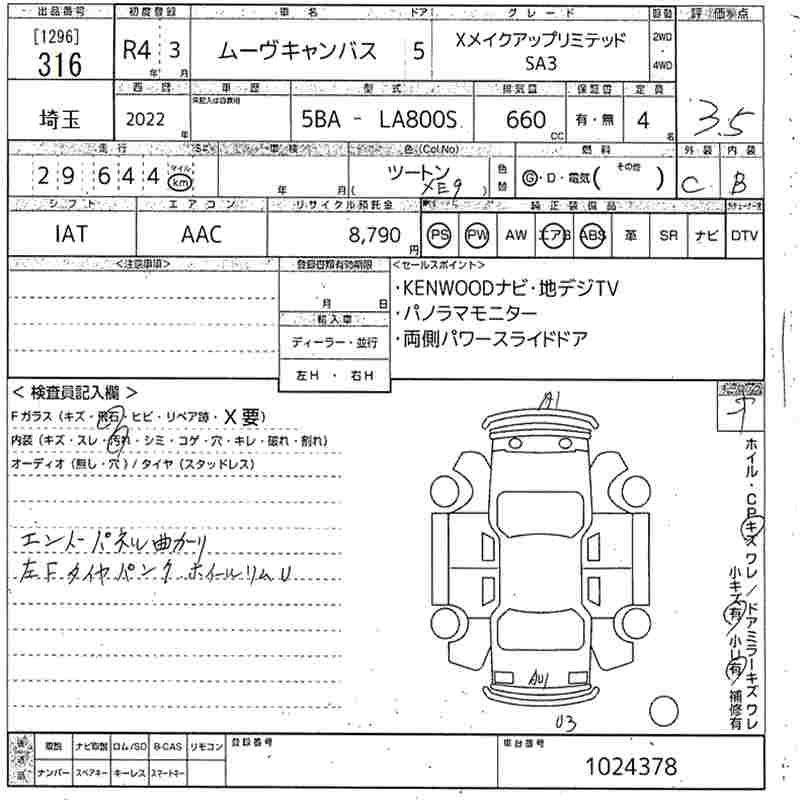 出品番号 初度登録 車名 ドア グレード 駆動 評価点
[1296] 316 R4年 3月 ムーヴキャンバス 5 Xメイクアップリミテッド 2WD
SA3 ・ 4WD
西暦 車歴 型式 排気量 保証書 定員 3.5
未記入は自家用
埼玉 2022年 5BA - LA800S 660CC 有・無 4名
走行 車検 色(Col.No) 燃料 外装 内装
29644 マイル km 年 月 ( ツートン XE9 ) 色替 G・D・電気( その他 ) C B
シフト エアコン リサイクル預託金 純正装備品
IAT AAC 8,790円 PS PW AW エアB ABS 革 SR ナビ DTV
<注意事項> 登録書類有効期限 <セールスポイント>
月 日 ・KENWOODナビ・地デジTV
輸入車 ・パノラマモニター
ディーラー・並行 ・両側パワースライドドア
左H ・ 右H
< 検査員記入欄 >
Fガラス (キズ・飛石・ヒビ・リペア跡・X要)
内装 (キズ・スレ・汚れ・シミ・コゲ・穴・キレ・破れ・割れ)
オーディオ (無し・穴) / タイヤ (スタッドレス)
エンドパネル曲カーリ
左Fタイヤパンク ホイールリムU
A1
AU1
U3
ホイル・CPキズワレ/ドアミラーキズワレ
小キズ有/小U有 補修有
後送品 車説 ナビ取説 ロム/SD B-CAS リモコン 登録番号 車台番号
ナンバー スペアキー キーレス スマートキー 1024378